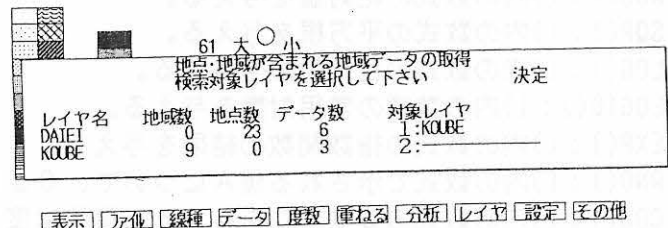 61 大 ○ 小
地点・地域が含まれる地域データの取得
検索対象レイヤを選択して下さい 決定
レイヤ名 地域数 地点数 データ数 対象レイヤ
DAIEI 0 23 6 1:KOUBE
KOUBE 9 0 3 2:
表示 ファイル 線種 データ 度数 重ねる 分析 レイヤ 設定 その他